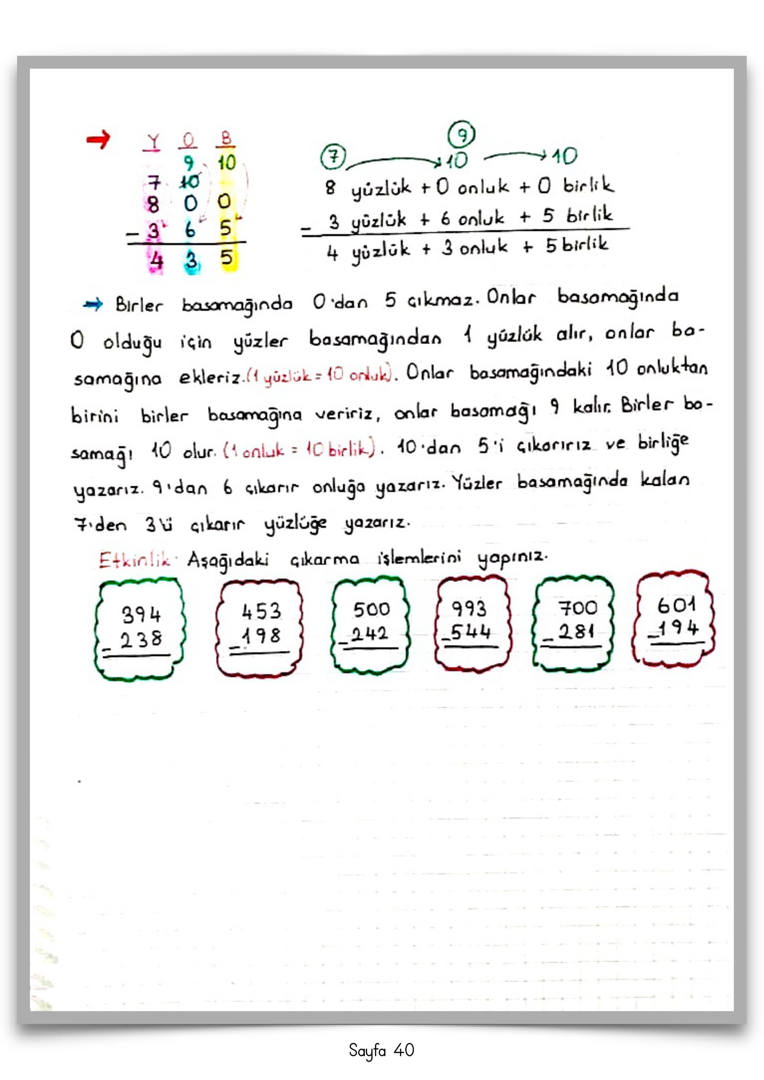 → Y O B
9 10
7 10
8 0 0
- 3 6 5
4 3 5
9
7 → 10 → 10
8 yüzlük + 0 onluk + 0 birlik
- 3 yüzlük + 6 onluk + 5 birlik
4 yüzlük + 3 onluk + 5 birlik
→ Birler basamağında 0'dan 5 çıkmaz. Onlar basamağında
0 olduğu için yüzler basamağından 1 yüzlük alır, onlar ba-
samağına ekleriz. (1 yüzlük = 10 onluk). Onlar basamağındaki 10 onluktan
birini birler basamağına veririz, onlar basamağı 9 kalır. Birler ba-
samağı 10 olur. (1 onluk = 10 birlik). 10'dan 5'i çıkarırız ve birliğe
yazarız. 9'dan 6 çıkarır onluğa yazarız. Yüzler basamağında kalan
7'den 3'ü çıkarır yüzlüğe yazarız.
Etkinlik: Aşağıdaki çıkarma işlemlerini yapınız.
394 453 500 993 700 601
- 238 - 198 - 242 - 544 - 281 - 194
Sayfa 40